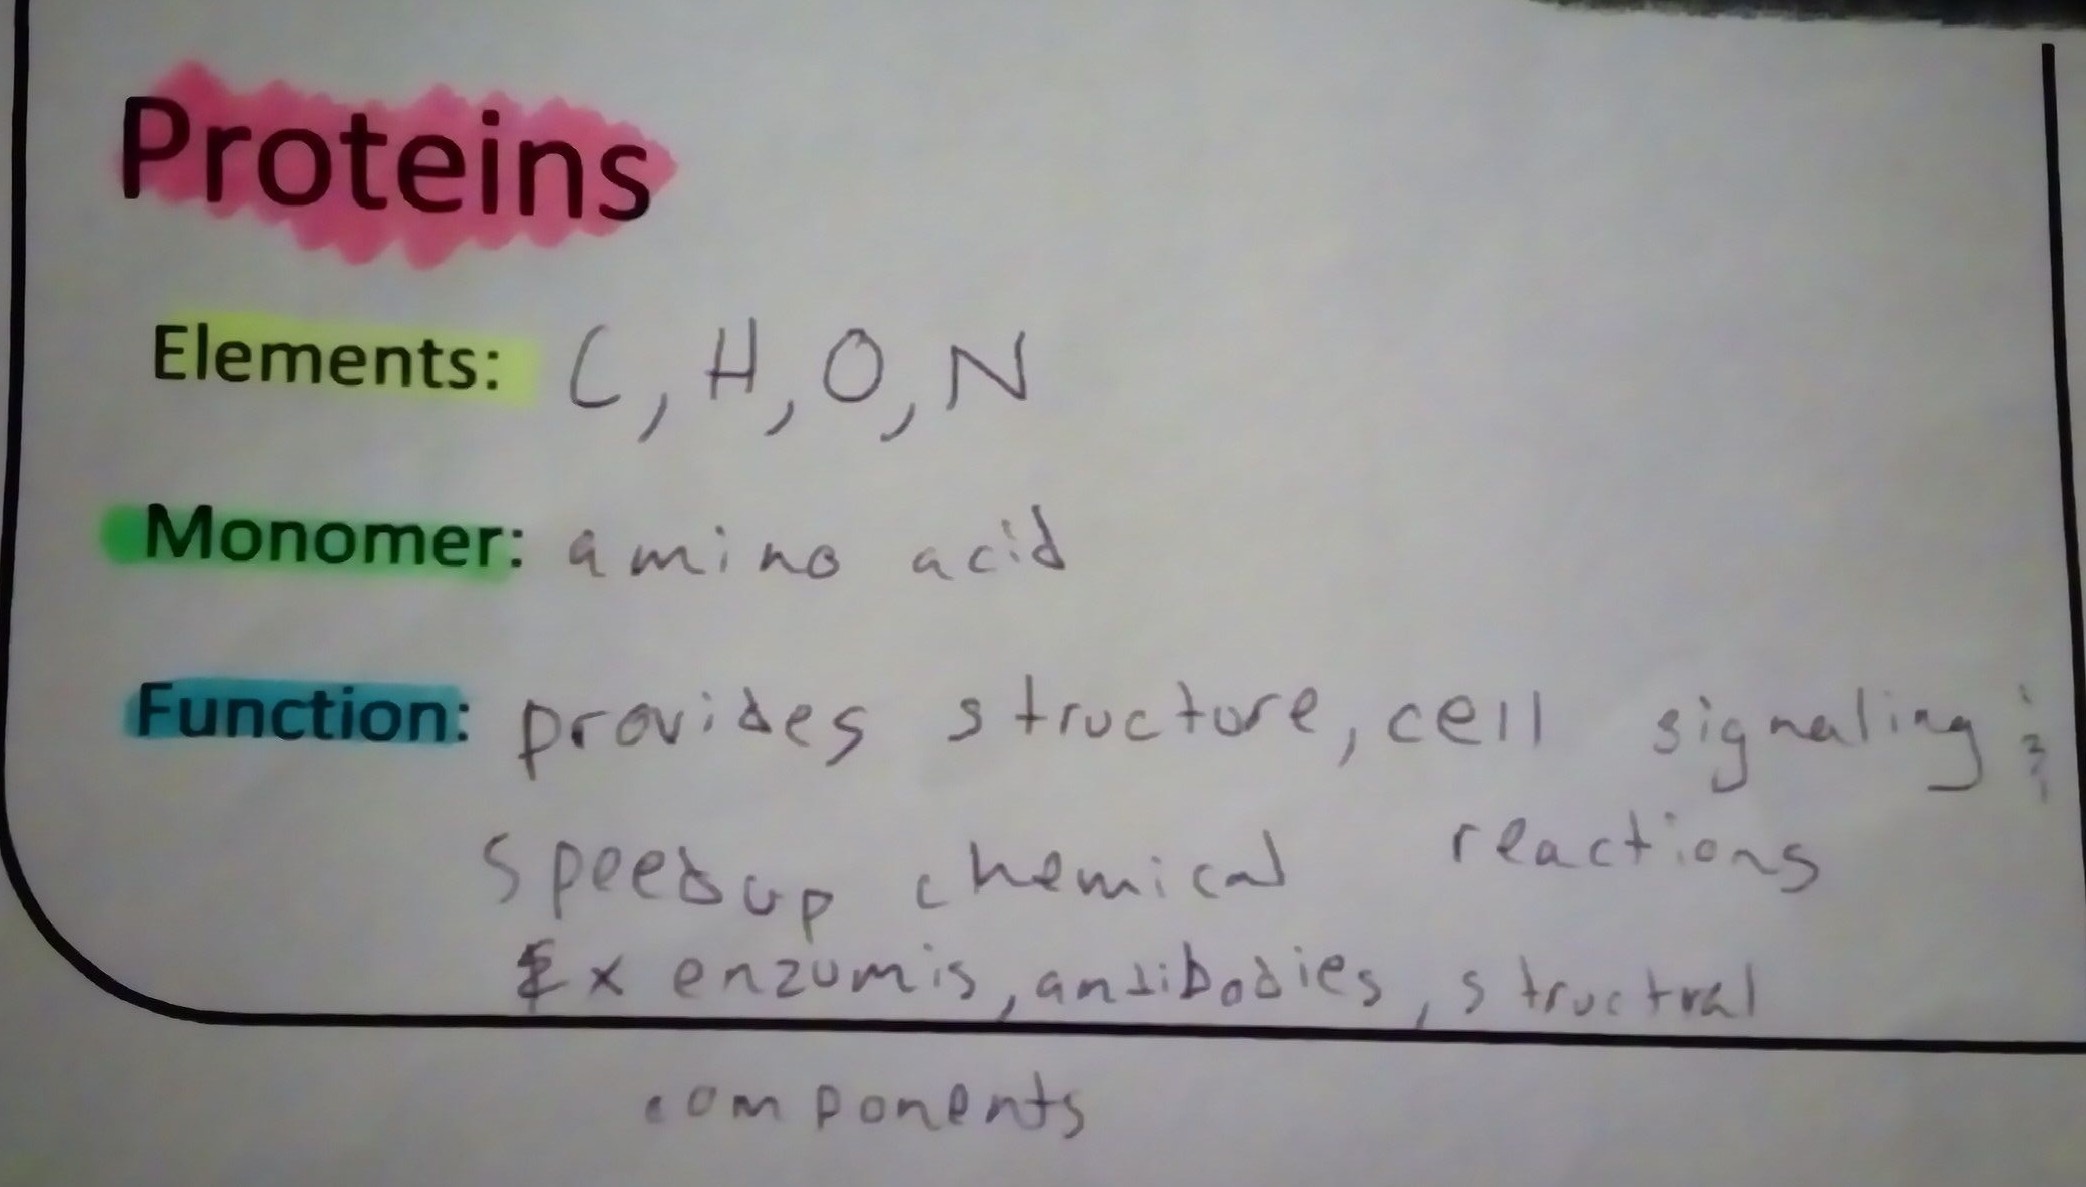 Proteins
Elements: C, H, O, N
Monomer: amino acid
Function: provides structure, cell signaling &
speeds up chemical reactions
Ex enzumis, antibodies, structral
components